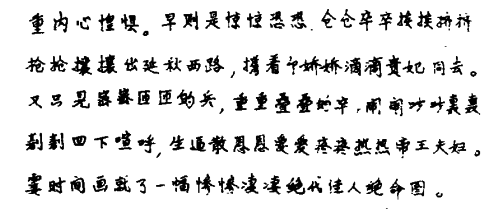 重内心惶惧。早则是惊惊恐恐、仓仓卒卒挨挨挤挤
抢抢攘攘出延秋西路,携着个娇娇滴滴贵妃同去。
又只见密密匝匝的兵,重重叠叠的卒,闹闹吵吵轰轰
剨剨四下喧呼,生逼散恩恩爱爱疼疼热热帝王夫妇。
霎时间画就了一幅惨惨凄凄绝代佳人绝命图。